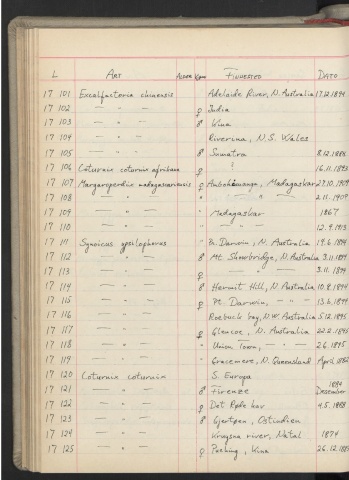 L ART ALDER KJØNN FINNESTED DATO
17 101 Excalfactoria chinensis Adelaide River, N. Australia 17.12.1894
17 102 — " — ♀ India
17 103 — " — ♂ Kina
17 104 — " — Riverina, N. S. Wales
17 105 — " — ♂ Sumatra 8.12.1884
17 106 Coturnix coturnix africana ♀ 16.11.1893
17 107 Margaroperdix madagascariensis ♀ Madagaskar
17 108 — " — " — " — 2.11.
17 109 — " — " Madagaskar 1867
17 110 — " — " — " — 12.9.1913
17 111 Synoicus ypsilophorus ♂ Pt. Darwin, N. Australia 19.6.1894
17 112 — " — ♂ Mt. Showbridge, N. Australia 3.11.1894
17 113 — " — ♀ — " — 3.11.1894
17 114 — " — ♂ Hermit Hill, N. Australia 10.8.1894
17 115 — " — ♀ Pt. Darwin, — " — 13.6.1894
17 116 — " — Roebuck bay, N.W. Australia 5.12.1895
17 117 — " — ♀ Glencoe, N. Australia 22.2.1895
17 118 — " — " Union Town, — " — 2.6.1895
17 119 — " — " Gracemere, N. Queensland April
17 120 Coturnix coturnix S. Europa
17 121 — " — ♂ Firenze Desember
17 122 — " — ♀ Det Røde hav 4.5.
17 123 — " — ♂ Ostindien
17 124 — " — river, Natal 1874
17 125 — " — ♀ Peking, Kina 26.12.